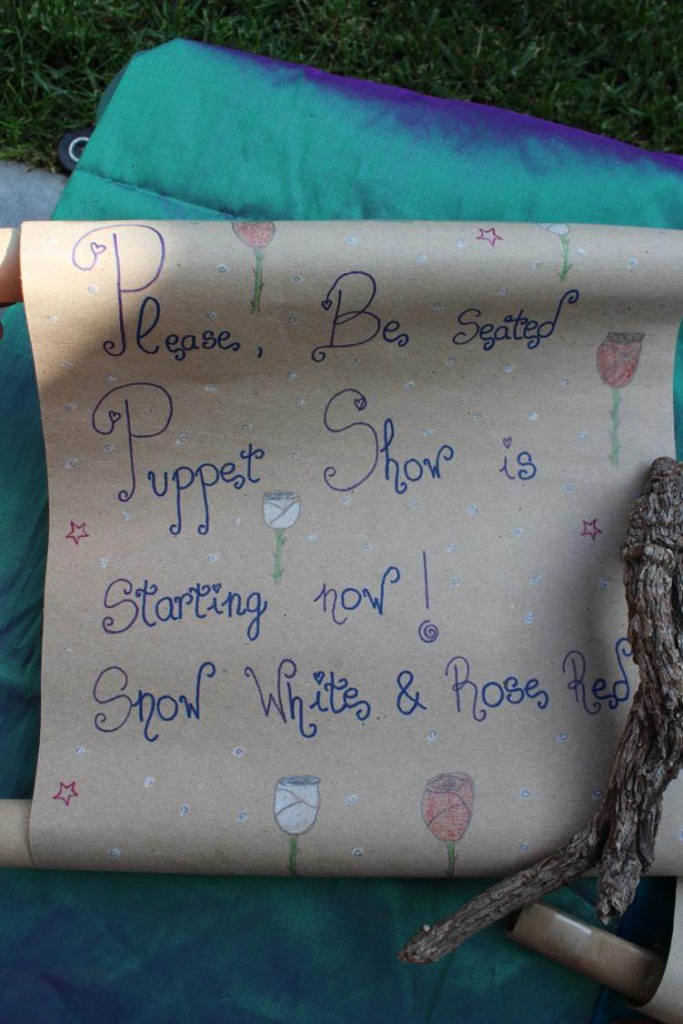 Please, Be Seated
Puppet Show is
Starting now!
Snow White & Rose Red